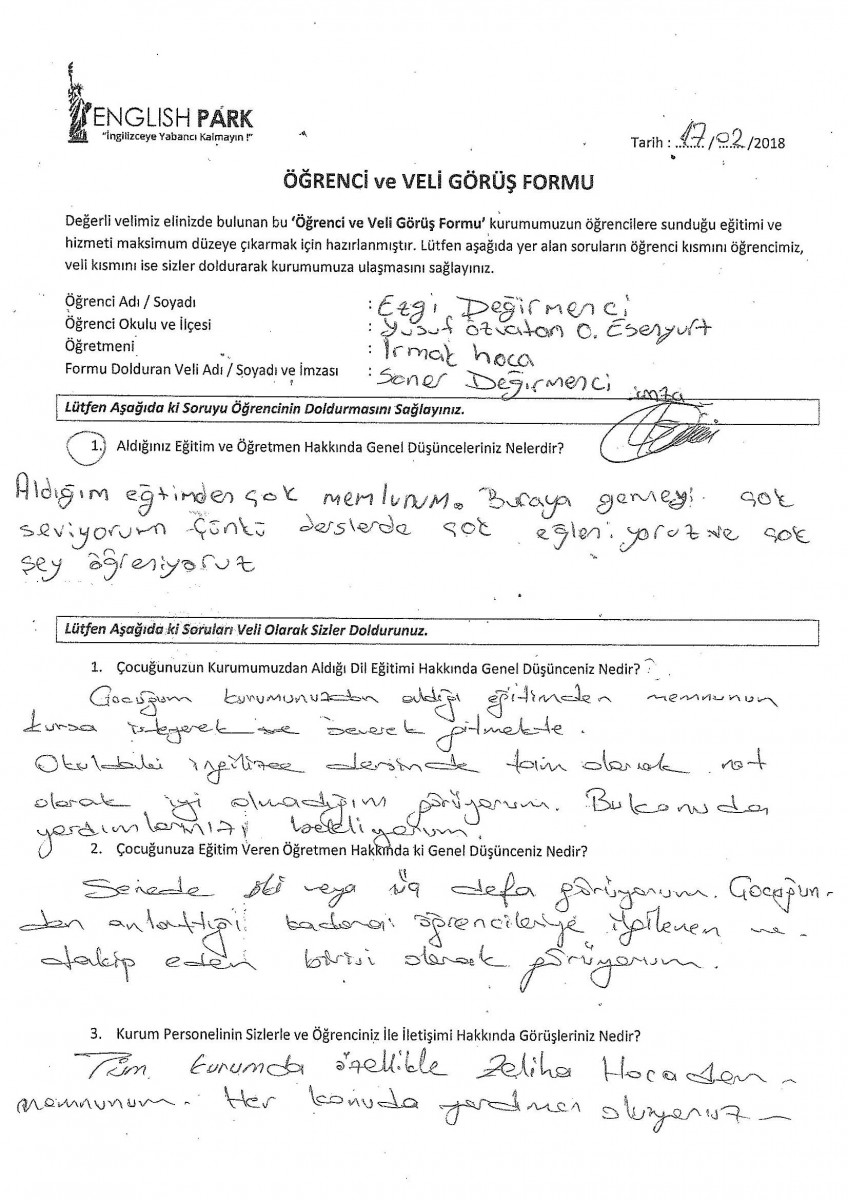 ENGLISH PARK
"İngilizceye Yabancı Kalmayın !"
Tarih : 17/02/2018
ÖĞRENCİ ve VELİ GÖRÜŞ FORMU
Değerli velimiz elinizde bulunan bu 'Öğrenci ve Veli Görüş Formu' kurumumuzun öğrencilere sunduğu eğitimi ve
hizmeti maksimum düzeye çıkarmak için hazırlanmıştır. Lütfen aşağıda yer alan soruların öğrenci kısmını öğrencimiz,
veli kısmını ise sizler doldurarak kurumumuza ulaşmasını sağlayınız.
Öğrenci Adı / Soyadı : Ezgi Değirmenci
Öğrenci Okulu ve İlçesi : Yusuf özvatan O. Esenyurt
Öğretmeni : Irmak hoca
Formu Dolduran Veli Adı / Soyadı ve İmzası : Soner Değirmenci imza
Lütfen Aşağıda ki Soruyu Öğrencinin Doldurmasını Sağlayınız.
1. Aldığınız Eğitim ve Öğretmen Hakkında Genel Düşünceleriniz Nelerdir?
Aldığım eğtimden çok memlunum. Buraya gemeyi çok
seviyorum Çünkü derslerde çok eğleniyoruz ve çok
şey öğreniyoruz
Lütfen Aşağıda ki Soruları Veli Olarak Sizler Doldurunuz.
1. Çocuğunuzun Kurumumuzdan Aldığı Dil Eğitimi Hakkında Genel Düşünceniz Nedir?
Çocuğum kurumunuzdan aldığı eğitimden memnunum
kursa isteyerek ve severek gitmekte.
Okuldaki ingilizce dersinde tam olarak not
olarak iyi olmadığını görüyorum. Bu konuda
yardımlarınızı bekliyorum.
2. Çocuğunuza Eğitim Veren Öğretmen Hakkında ki Genel Düşünceniz Nedir?
Senede iki veya üç defa görüyorum. Çocuğun-
dan anlattığı kadarı öğrencileriye ilgilenen ve
takip eden birisi olarak görüyorum.
3. Kurum Personelinin Sizlerle ve Öğrenciniz İle İletişimi Hakkında Görüşleriniz Nedir?
Tüm kurumda özellikle Zeliha Hocadan
memnunum. Her konuda yardımcı oluyoruz